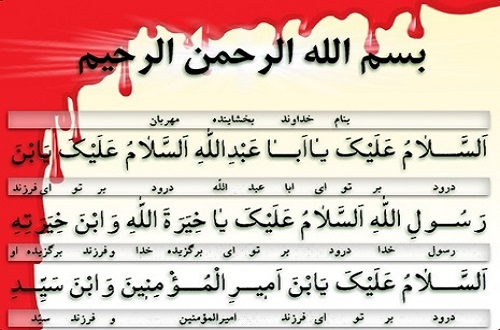 بسم الله الرحمن الرحیم
بنام خداوند بخشاینده مهربان
اَلسَّلامُ عَلَیْکَ یٰا اَبٰا عَبْدِاللّٰهِ اَلسَّلامُ عَلَیْکَ یَابْنَ
درود بر تو ای ابا عبد الله درود بر تو ای فرزند
رَسُولِ اللّٰهِ اَلسَّلامُ عَلَیْکَ یٰا خِیَرَةَ اللّٰهِ وَ ابْنَ خِیَرَتِهِ
رسول خدا درود بر تو ای برگزیده خدا و فرزند برگزیده او
اَلسَّلامُ عَلَیْکَ یَابْنَ اَمیرِ الْمُؤْمِنینَ وَ ابْنَ سَیِّدِ
درود بر تو ای فرزند امیرالمؤمنین و فرزند سیّد